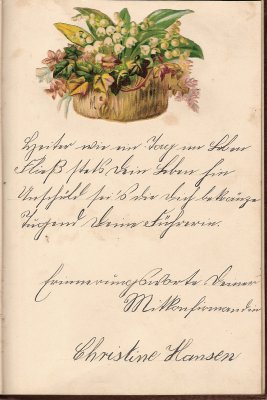 Heiter wie ein Tag im Leben
Fließ stets Dein Leben hin
Unschuld sei's die Dich bekränze
Tugend Deine Führerin.
Erinnerungsworte Deiner
Mitkonfirmandin
Christine Hansen